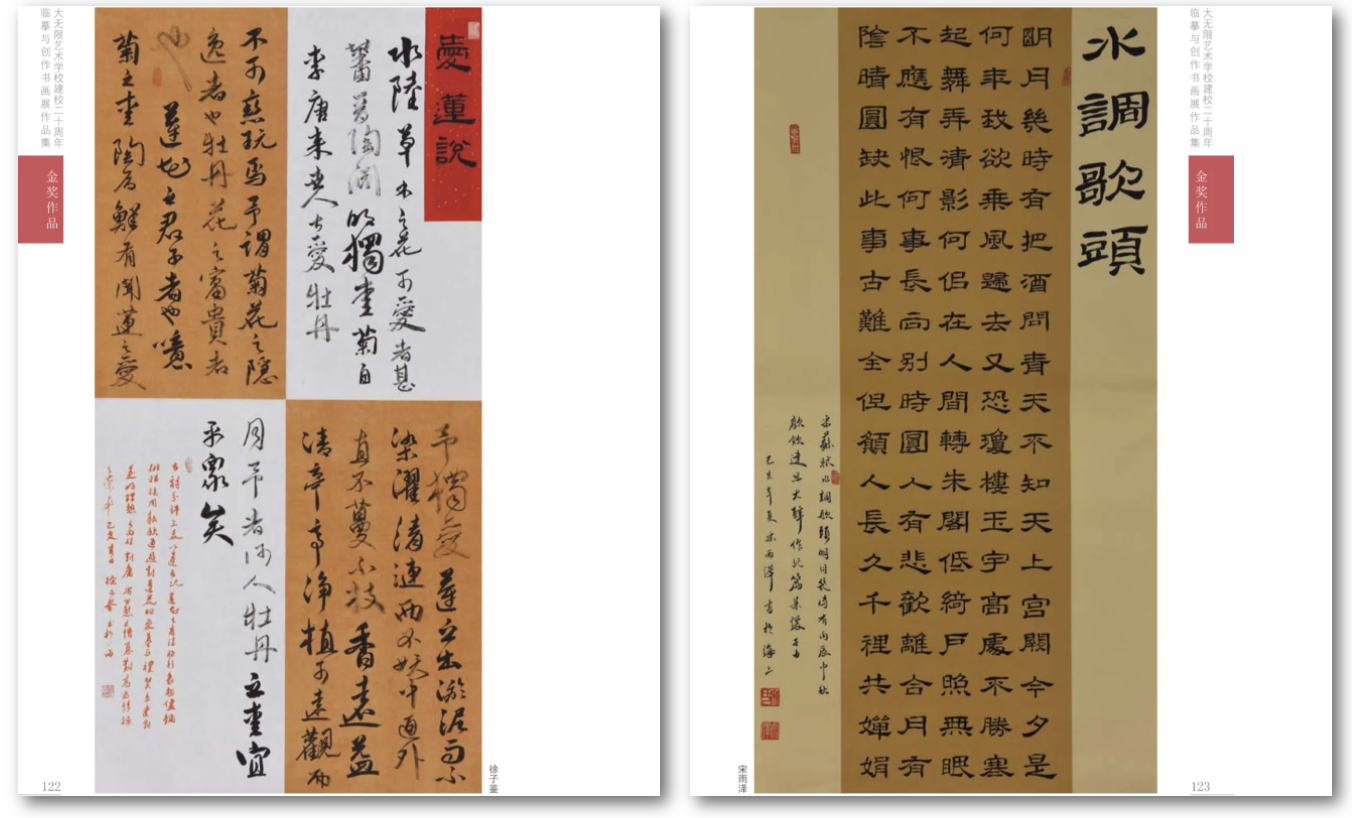 大无限艺术学校建校二十周年
临摹与创作书画展作品集
金奖作品
愛蓮說
水陸草木之花可愛者甚
蕃晉陶淵明獨愛菊自
李唐来世人甚愛牡丹
予獨愛蓮之出淤泥而不
染濯清漣而不妖中通外
直不蔓不枝香遠益
清亭亭淨植可遠觀而
不可褻玩焉予謂菊花之隱
逸者也牡丹花之富貴者
也蓮花之君子者也噫
菊之愛陶后鮮有聞蓮之愛
同予者何人牡丹之愛宜
乎眾矣
徐子鉴
122
大无限艺术学校建校二十周年
临摹与创作书画展作品集
金奖作品
水調歌頭
明月幾時有把酒問青天不知天上宮闕今夕是
何年我欲乘風歸去又恐瓊樓玉宇高處不勝寒
起舞弄清影何侣在人間轉朱閣低綺戶照無眠
不應有恨何事長向别時圓人有悲歡離合月有
陰晴圓缺此事古難全但願人長久千裡共嬋娟
宋蘇軾水調歌頭明月幾時有丙辰中秋
歡飲達旦大醉作此篇兼懷子由
己亥年夏宋雨澤書於海上
宋雨泽
123